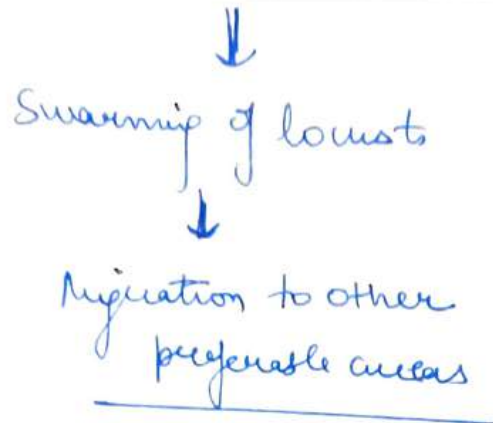 Swarming of locusts
Migration to other
preferable areas